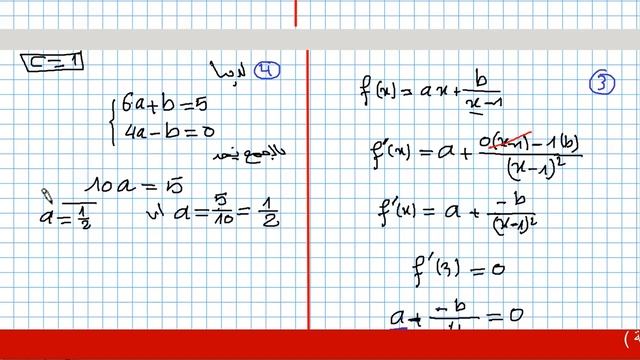 C = 1
④ لدينا
{ 6a + b = 5
4a - b = 0
بالجمع نجد
10a = 5
a = 1/2 اذن a = 5/10 = 1/2
③
f(x) = ax + b/(x-1)
f'(x) = a + (0(x-1) - 1(b))/(x-1)²
f'(x) = a + -b/(x-1)²
f'(3) = 0
a + -b/4 = 0